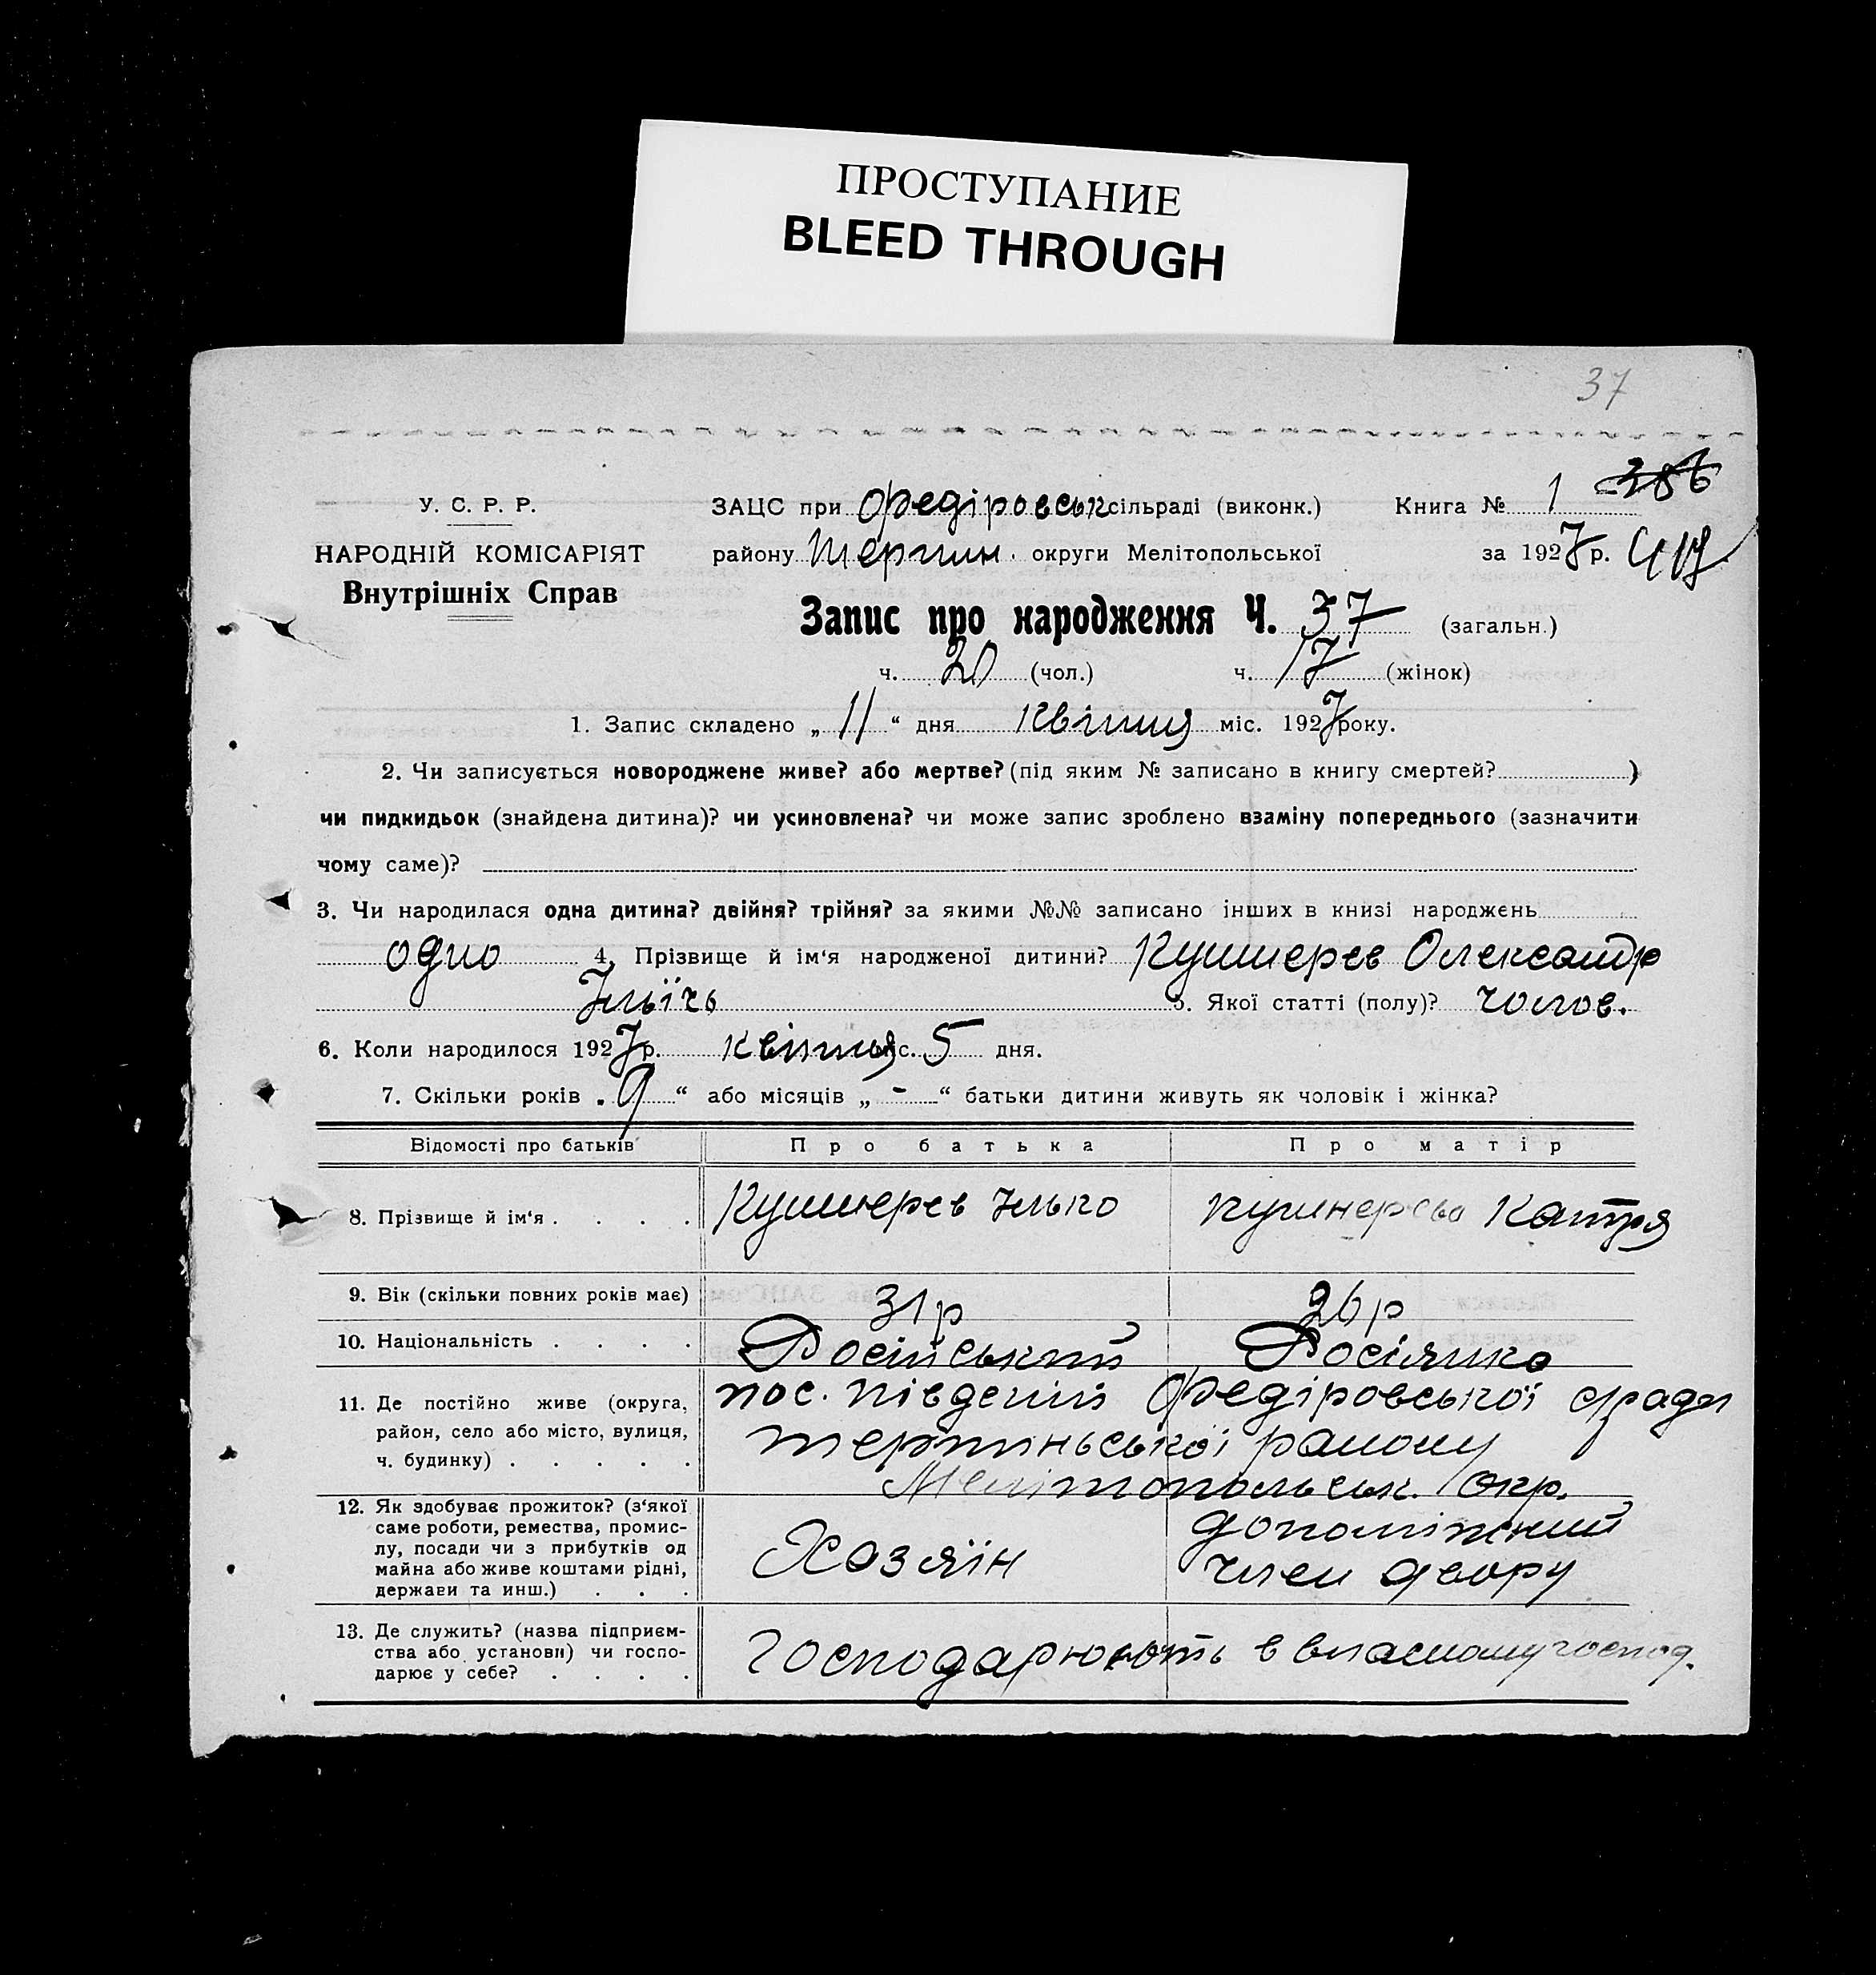 ПРОСТУПАНИЕ
BLEED THROUGH
37
У. С. Р. Р.
НАРОДНІЙ КОМІСАРІЯТ
Внутрішніх Справ
ЗАЦС при Федіровськ сільраді (виконк.) Книга № 1 386
району Терпин. округи Мелітопольської за 1927 р.
Запис про народження Ч. 37 (загальн.)
ч. 20 (чол.) ч. 17 (жінок)
1. Запис складено „ 11 “ дня квітня міс. 1927 року.
2. Чи записується новороджене живе? або мертве? (під яким № записано в книгу смертей? )
чи пидкидьок (знайдена дитина)? чи усиновлена? чи може запис зроблено взаміну попереднього (зазначити
чому саме)?
3. Чи народилася одна дитина? двійня? трійня? за якими №№ записано інших в книзі народжень
одно 4. Прізвище й ім‘я народженої дитини? Кушнерев Олександр
Ільїчь 5. Якої статті (полу)? чолов.
6. Коли народилося 1927 р. квітня міс. 5 дня.
7. Скільки років „ 9 “ або місяців „ - “ батьки дитини живуть як чоловік і жінка?
Відомості про батьків Про батька Про матір
8. Прізвище й ім‘я . . . . Кушнерев Ілько Кушнерева Катря
9. Вік (скільки повних років має) 31 р 26 р
10. Національність . . . . Російський Росіянка
11. Де постійно живе (округа,
район, село або місто, вулиця,
ч. будинку) . . . . .
пос. Південий Федіровської с/ради
терпиньської району
Мелітопольськ. окр.
12. Як здобуває прожиток? (з‘якої
саме роботи, ремества, промис-
лу, посади чи з прибутків од
майна або живе коштами рідні,
держави та инш.) . . .
Хозяїн
допоміжний
член двору
13. Де служить? (назва підприєм-
ства або установи) чи госпо-
дарює у себе? . . . .
господарюють в власному господ.